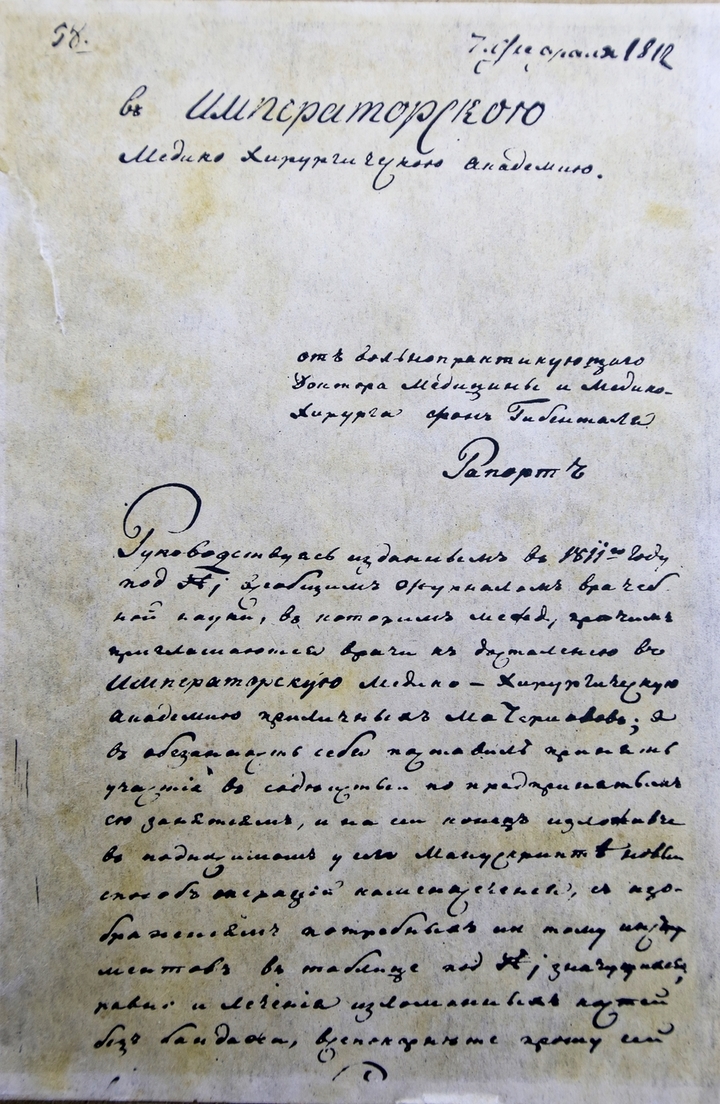 58.
7. февраля 1812
въ Императорскою
Медико Хирургическою академию.
отъ вольнопрактикующаго
Доктора Медицины и Медико-
Хирурга фонъ Гибенталя
Рапортъ
Руководствуясь изданнымъ въ 1811мъ году
под № 1 Всеобщимъ журналомъ врачеб
ной науки, въ которомъ между прочимъ
приглашаются врачи къ доставленею въ
Императорскую Медико-Хирургическую
академию приличныхъ Матерiаловъ; я
въ обезанность себе поставилъ принять
участiе въ по предпринятымъ
ею занятiямъ, и на сей конецъ изложивъ
въ подносимомъ у сего Манускриптѣ новый
способъ операцiй камнесеченей, съ изо-
браженiемъ потребныхъ къ тому инстру
ментовъ въ таблице под № 1 значущихся,
равно и леченiя изломанныхъ костей
безъ бандажа, всепокорнюше прошу сей